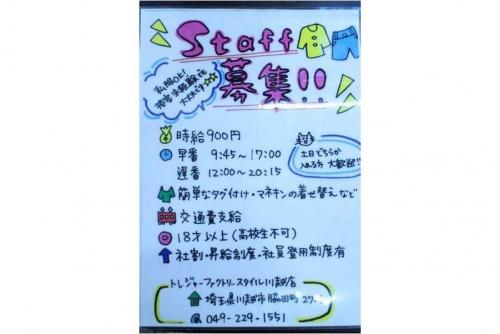 Staff
募集!!
私服OK!
接客未経験でも
大丈夫です☆☆
時給900円
早番 9:45～17:00
遅番 12:00～20:15
土日どちらか
入れる方 大歓迎!!
簡単なタグ付け・マネキンの着せ替えなど
交通費支給
18才以上(高校生不可)
社割・昇給制度・社員登用制度有
トレジャーファクトリースタイル川越店
埼玉県川越市脇田町
049-229-1551